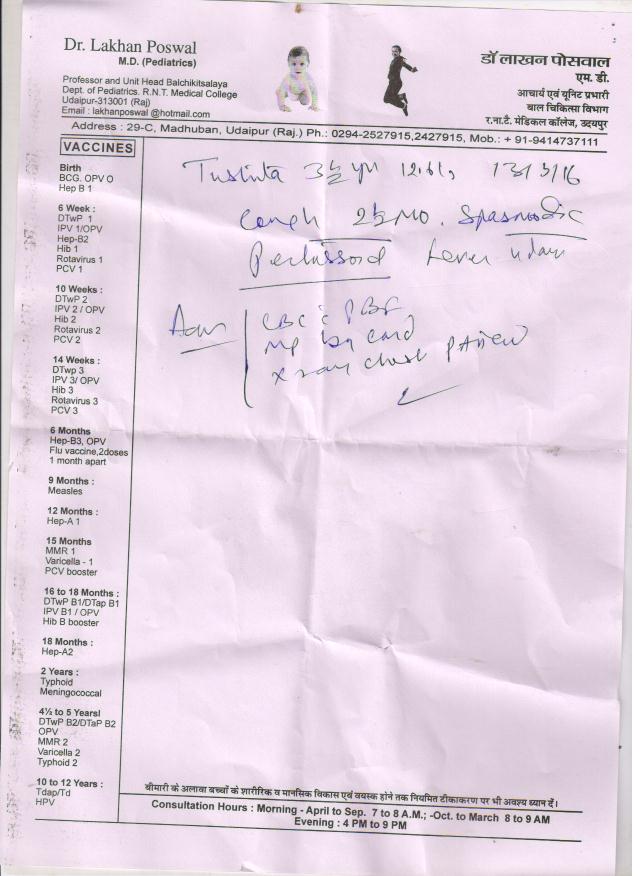 Dr. Lakhan Poswal
M.D. (Pediatrics)
Professor and Unit Head Balchikitsalaya
Dept. of Pediatrics. R.N.T. Medical College
Udaipur-313001 (Raj)
Email : lakhanposwal @hotmail.com
डॉ लाखन पोसवाल
एम. डी.
आचार्य एवं यूनिट प्रभारी
बाल चिकित्सा विभाग
र.ना.टै. मेडिकल कॉलेज, उदयपुर
Address : 29-C, Madhuban, Udaipur (Raj.) Ph.: 0294-2527915,2427915, Mob.: + 91-9414737111
VACCINES
Birth
BCG. OPV O
Hep B 1
6 Week :
DTwP 1
IPV 1/OPV
Hep-B2
Hib 1
Rotavirus 1
PCV 1
10 Weeks :
DTwP 2
IPV 2 / OPV
Hib 2
Rotavirus 2
PCV 2
14 Weeks :
DTwp 3
IPV 3/ OPV
Hib 3
Rotavirus 3
PCV 3
6 Months
Hep-B3, OPV
Flu vaccine,2doses
1 month apart
9 Months :
Measles
12 Months :
Hep-A 1
15 Months
MMR 1
Varicella - 1
PCV booster
16 to 18 Months :
DTwP B1/DTap B1
IPV B1 / OPV
Hib B booster
18 Months :
Hep-A2
2 Years :
Typhoid
Meningococcal
4½ to 5 Yearsl
DTwP B2/DTaP B2
OPV
MMR 2
Varicella 2
Typhoid 2
10 to 12 Years :
Tdap/Td
HPV
3½ yr
cough 2½ mo. Spasmodic
Pertussoid
CBC c PBF
MP by card
x ray chest PA view
बीमारी के अलावा बच्चों के शारीरिक व मानसिक विकास एवं वयस्क होने तक नियमित टीकाकरण पर भी अवश्य ध्यान दें।
Consultation Hours : Morning - April to Sep. 7 to 8 A.M.; -Oct. to March 8 to 9 AM
Evening : 4 PM to 9 PM